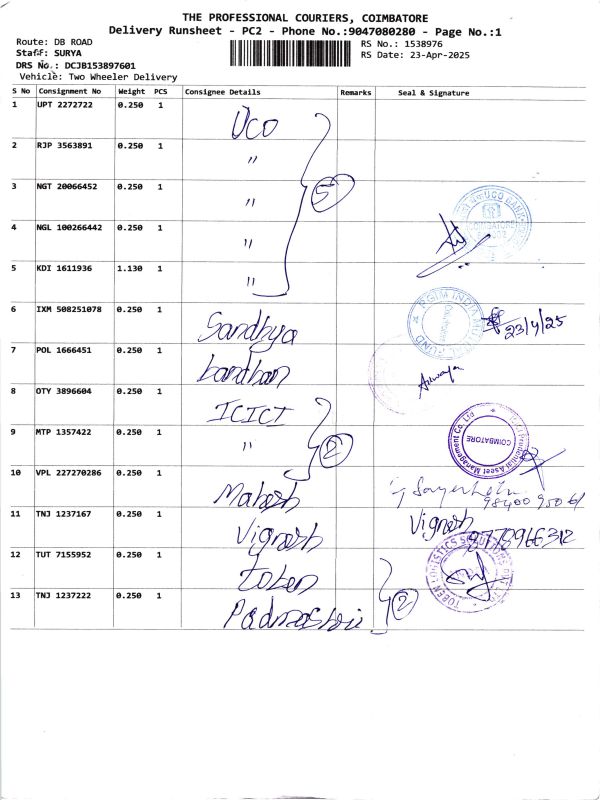 THE PROFESSIONAL COURIERS, COIMBATORE
Delivery Runsheet - PC2 - Phone No.:9047080280 - Page No.:1
Route: DB ROAD
RS No.: 1538976
Staff: SURYA
RS Date: 23-Apr-2025
DRS No.: DCJB153897601
Vehicle: Two Wheeler Delivery
S No Consignment No Weight PCS Consignee Details Remarks Seal & Signature
1 UPT 2272722 0.250 1 UCO
2 RJP 3563891 0.250 1 "
3 NGT 20066452 0.250 1 " 5
4 NGL 100266442 0.250 1 "
5 KDI 1611936 1.130 1 "
6 IXM 508251078 0.250 1 Sandhya 23/4/25
7 POL 1666451 0.250 1
8 OTY 3896604 0.250 1 ICICI
9 MTP 1357422 0.250 1 " 2
10 VPL 227270286 0.250 1 Mahesh
11 TNJ 1237167 0.250 1 Vignesh Vignesh
12 TUT 7155952 0.250 1 Toben
13 TNJ 1237222 0.250 1 Padmashri 2
UCO BANK
COIMBATORE
PGIM INDIA MUTUAL FUND
Prudential Asset Management Co. Ltd
COIMBATORE
TOBEN LOGISTICS SOLUTIONS